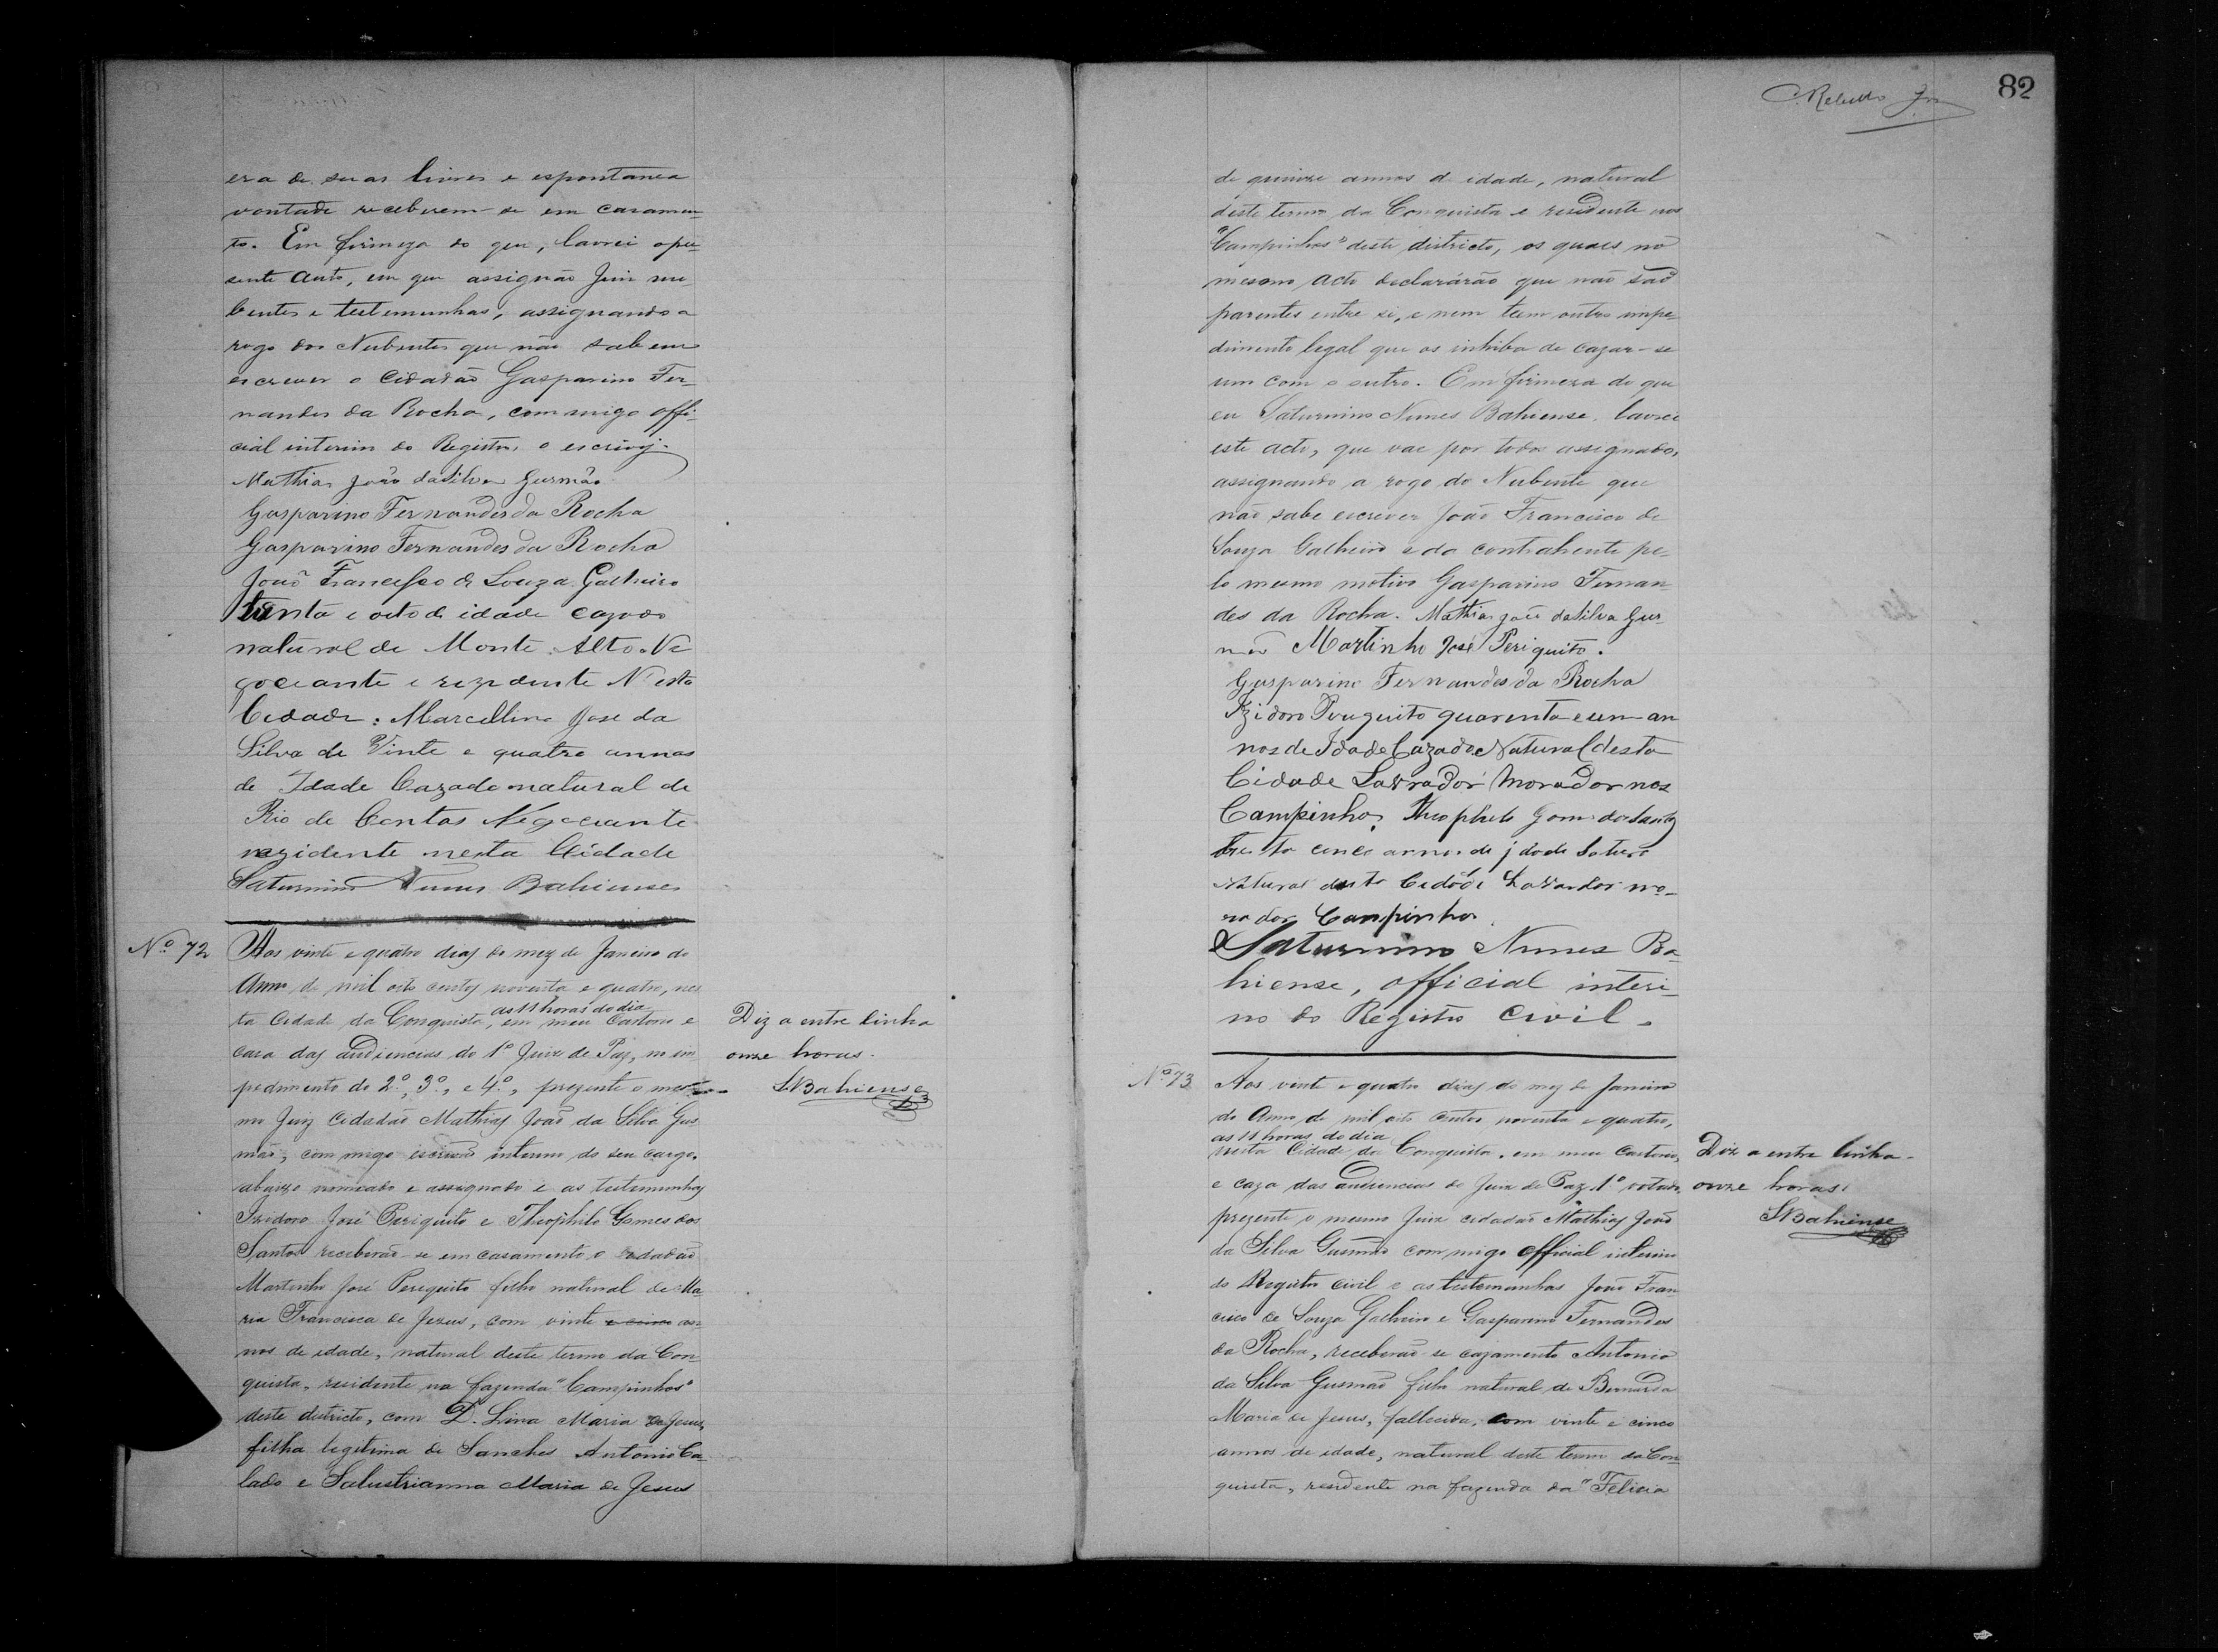 era de suas livres e espontanea
vontade receberem-se em casamen-
to. Em firmeza do que, lavrei o pre-
sente auto, em que assignão Juiz nu-
bentes e testemunhas, assignando a
rogo dos Nubentes que não sabem
escrever o Cidadão Gasparino Fer-
nandes da Rocha, commigo offi-
cial interino do Registro o escrevy.
Mathias João da Silva Gusmão
Gasparino Fernandes da Rocha
Gasparino Fernandes da Rocha
João Francisco de Souza Galheiro
trinta e oito de idade cazado
natural de Monte Alto Ne
gociante e rezidente Nesta
Cidade: Marcellino Jose da
Silva de Vinte e quatro annos
de Idade Cazado natural de
Rio de Contas Negociante
rezidente nesta Cidade
Saturnino Nunes Bahiense
Nº 72 Aos vinte e quatro dias do mez de Janeiro do
Anno de mil oito centos noventa e quatro, nes
ta Cidade da Conquista, as 11 horas do dia em meu Cartorio e
casa das audiencias do 1º Juiz de Paz, no im
pedimento do 2º, 3º, e 4º, prezente o mes-
mo Juiz Cidadão Mathias João da Silva Gus
mão, com migo escrivão interino do seu cargo.
abaixo nomeado e assignado e as testemunhas
Izidoro José Periquito e Theophilo Gomes dos
Santos receberão-se em casamento o cidadão
Martinho José Periquito filho natural de Ma-
ria Francisca de Jezus, com vinte e cinco an-
nos de idade, natural deste termo da Con-
quista, residente na fazenda "Campinhos"
deste districto, com D. Lina Maria de Jesus,
filha legitima de Sanches Antonio Ca-
lado e Salustrianna Maria de Jesus
Diz a entre linha
onze horas.
SBahiense
82
de quinze annos d idade, natural
deste termo da Conquista e residente nos
"Campinhos" deste districto, os quaes no
mesmo acto declarárão que não são
parentes entre si, e nem teem outro impe-
dimento legal que os inhiba de cazar-se
um com o outro. Em firmeza do que
eu Saturnino Nunes Bahiense lavrei
este acto, que vae por todos assignado,
assignando a rogo do Nubente que
não sabe escrever João Francisco de
Souza Galheiro e da contrahente pe-
lo mesmo motivo Gasparino Fernan-
des da Rocha. Mathias João da Silva Gus
mão Martinho José Periquito.
Gasparino Fernandes da Rocha
Izidoro Periquito quarenta e um an
nos de Idade Cazado Natural desta
Cidade Lavrador Morador nos
Campinhos, Theophilo Gomes dos Santos
trinta cinco annos de idade Solteiro
Natural desta Cidade Lavrador mo-
rador Campinhos
Saturnino Nunes Ba-
hiense, official interi-
no do Registro Civil.
Nº 73 Aos vinte e quatro dias do mez de Janeiro
do Anno de mil oito centos noventa e quatro,
as 11 horas do dia
nesta Cidade da Conquista, em meu Cartorio,
e caza das audiencias do Juiz de Paz 1º votado,
prezente o mesmo Juiz cidadão Mathias João
da Silva Gusmão com migo official interino
do Registro civil e as testemunhas João Fran-
cisco de Souza Galheiro e Gasparino Fernandes
da Rocha, receberão-se cazamento Antonio
da Silva Gusmão filho natural de Bernarda
Maria de Jesus, fallecida, com vinte e cinco
annos de idade, natural deste termo da Con-
quista, residente na fazenda da "Felicia
Diz a entre linha-
onze horas.
SBahiense